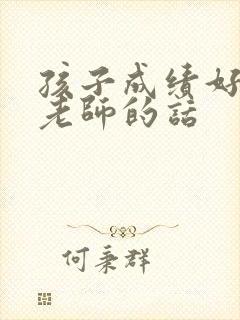 孩子成绩好
老師的話
何秉群